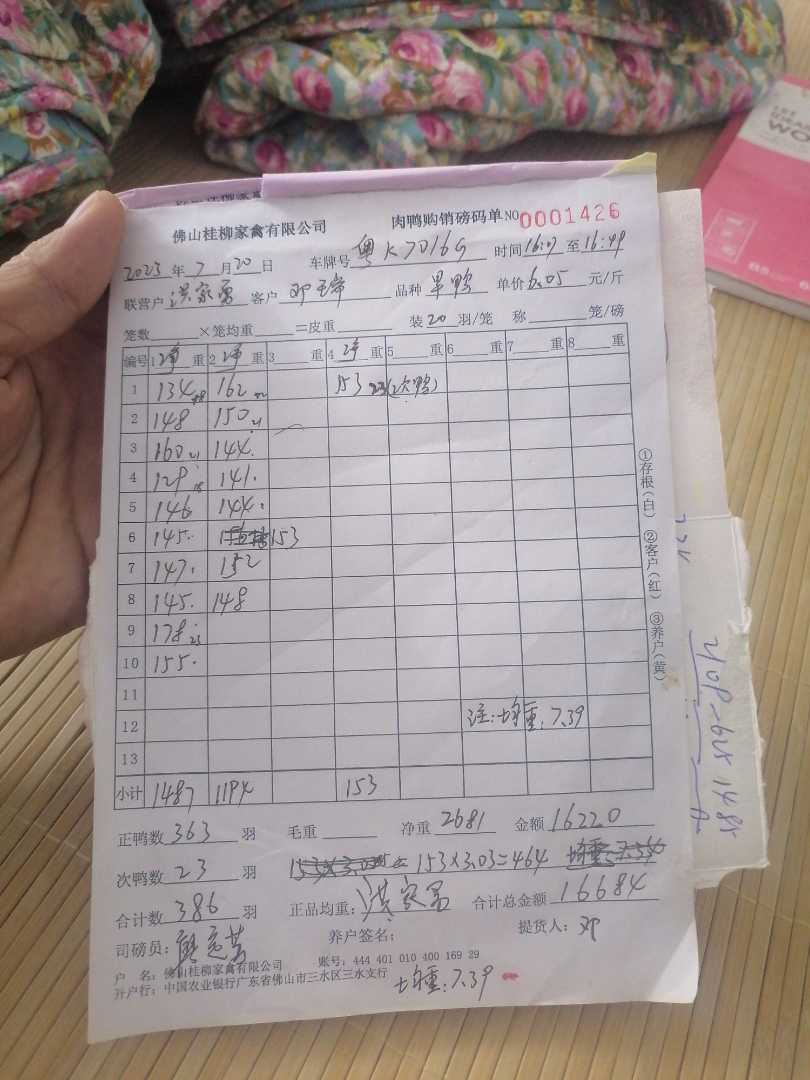 佛山桂柳家禽有限公司 肉鸭购销磅码单 NO 0001426
2023 年 7 月 20 日 车牌号 粤K7016G 时间 16:07 至 16:49
联营户 洪家勇 客户 邓 品种 旱鸭 单价 6.05 元/斤
笼数 ×笼均重 =皮重 装 20 羽/笼 称 笼/磅
编号 1 净 重 2 净 重 3 重 4 净 重 5 重 6 重 7 重 8 重
1 134 162 153 23(次鸭)
2 148 150 21
3 160 21 144
4 129 18 141
5 146 144
6 145 153
7 147 152
8 145 148
9 178 23
10 155
11
12 注:均重:7.39
13
小计 1487 1194 153
正鸭数 363 羽 毛重 净重 2681 金额 16220
次鸭数 23 羽 153×3.03=464
合计数 386 羽 正品均重: 洪家勇 合计总金额 16684
司磅员: 养户签名: 提货人: 邓
户 名: 佛山桂柳家禽有限公司 账号: 444 401 010 400 169 29
开户行: 中国农业银行广东省佛山市三水区三水支行
均重:7.39
①存根(白) ②客户(红) ③养户(黄)
WO